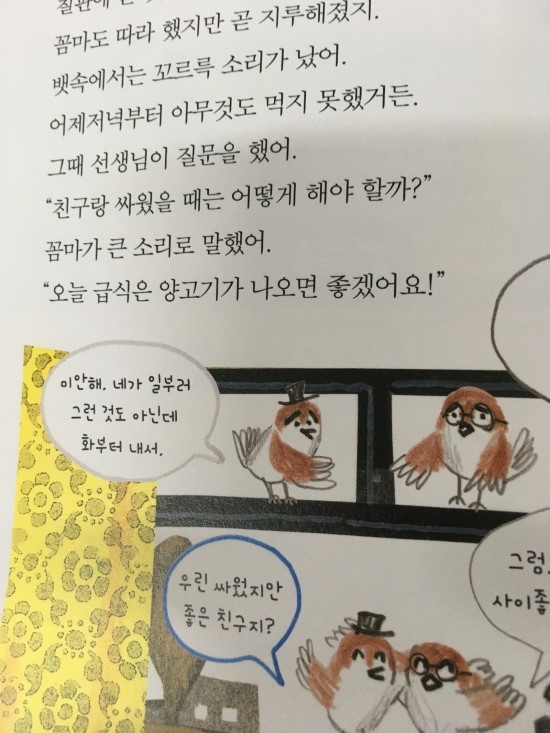 꼼마도 따라 했지만 곧 지루해졌지.
뱃속에서는 꼬르륵 소리가 났어.
어제저녁부터 아무것도 먹지 못했거든.
그때 선생님이 질문을 했어.
“친구랑 싸웠을 때는 어떻게 해야 할까?”
꼼마가 큰 소리로 말했어.
“오늘 급식은 양고기가 나오면 좋겠어요!”
미안해. 네가 일부러
그런 것도 아닌데
화부터 내서.
우린 싸웠지만
좋은 친구지?
그럼.
사이좋